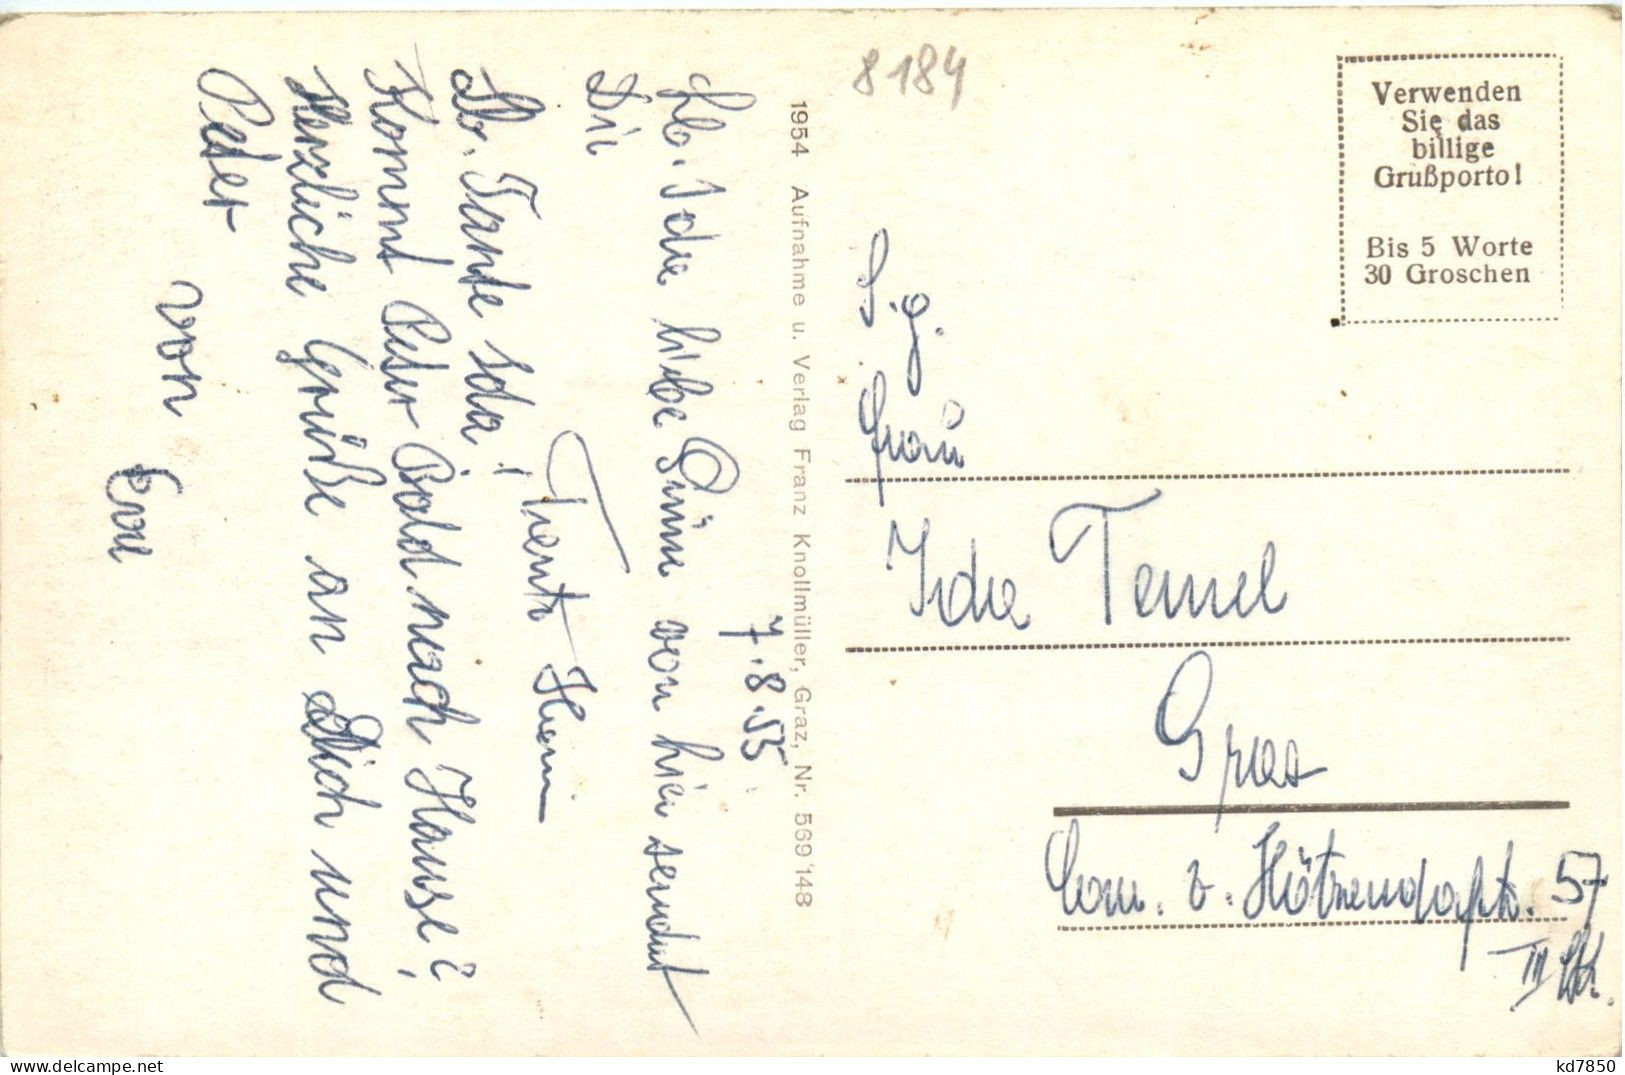 7.8.55
Lb. Ida liebe Grüße von hier sendet
Dir
Lb. Tante Ida!
Kommt Peter Bald nach Hause?
Herzliche Grüße an Dich und
Peter
von
Eva
1954 Aufnahme u. Verlag Franz Knollmüller, Graz, Nr. 569/148
8184
Verwenden
Sie das
billige
Grußporto!
Bis 5 Worte
30 Groschen
S.g.
Frau
Ida Temel
Graz
v. Hötzendorfstr. 57
III Stk.
kd7850